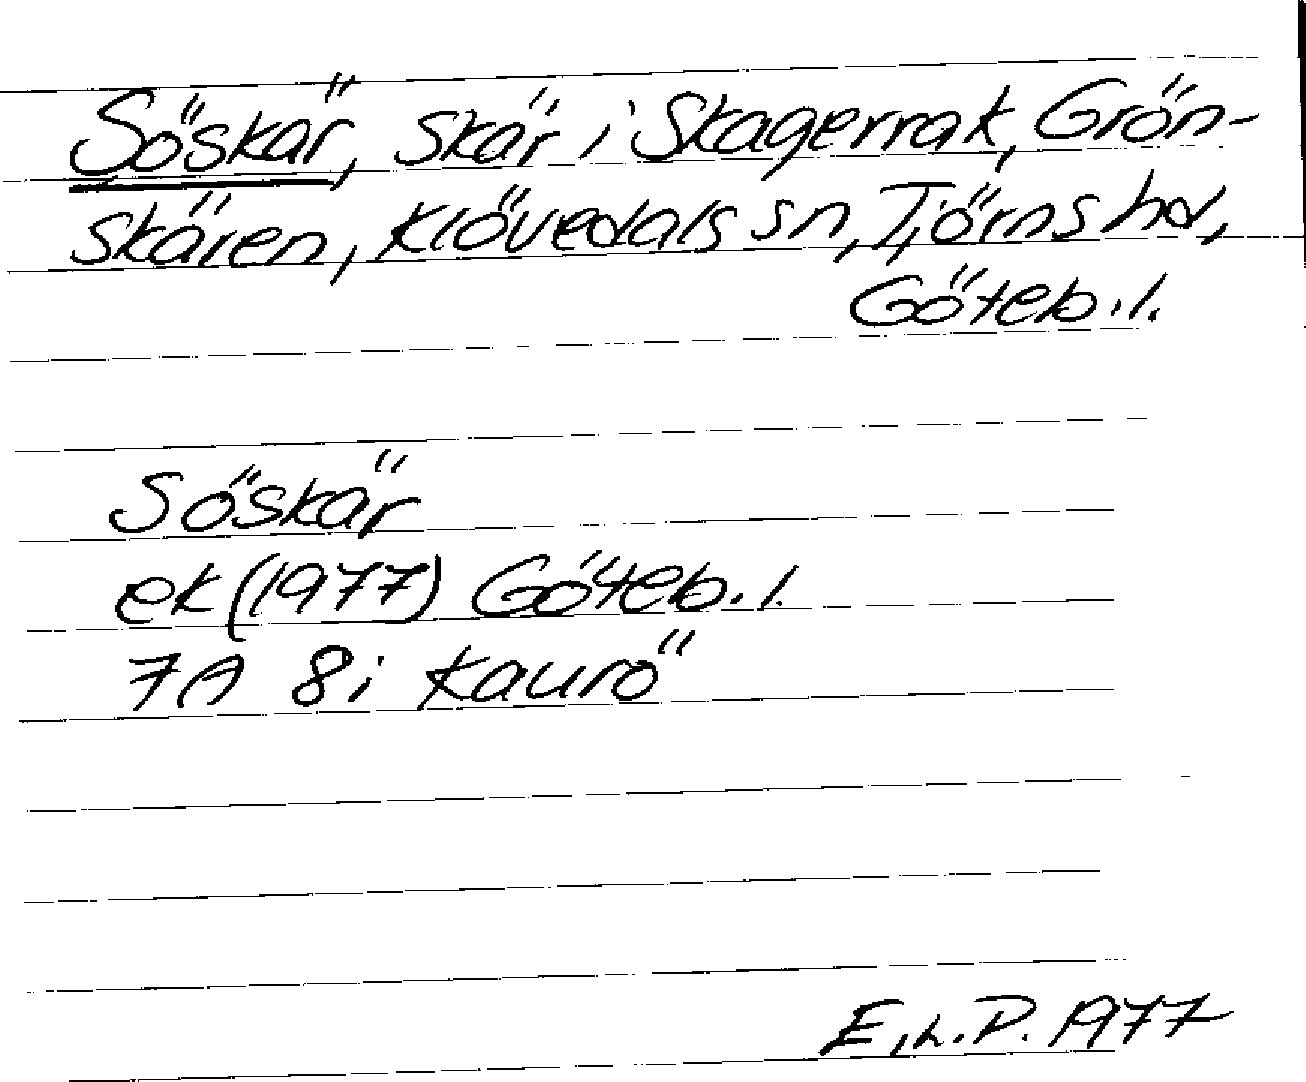 Söskär, skär i Skagerrak, Grön-
skären, Klövedals sn, Tjörns hd,
Göteb.l.
Söskär
ek (1977) Göteb.l.
7A 8i Kaurö
E.L.P. 1977